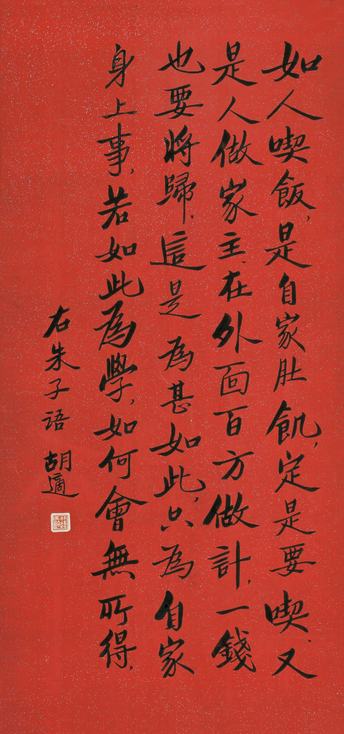 如人喫飯，是自家肚飢，定是要喫．又
是人做家主．在外面百方做計，一錢
也要將歸．這是為甚如此，只為自家
身上事．若如此為學，如何會無所得．
右朱子語 胡適